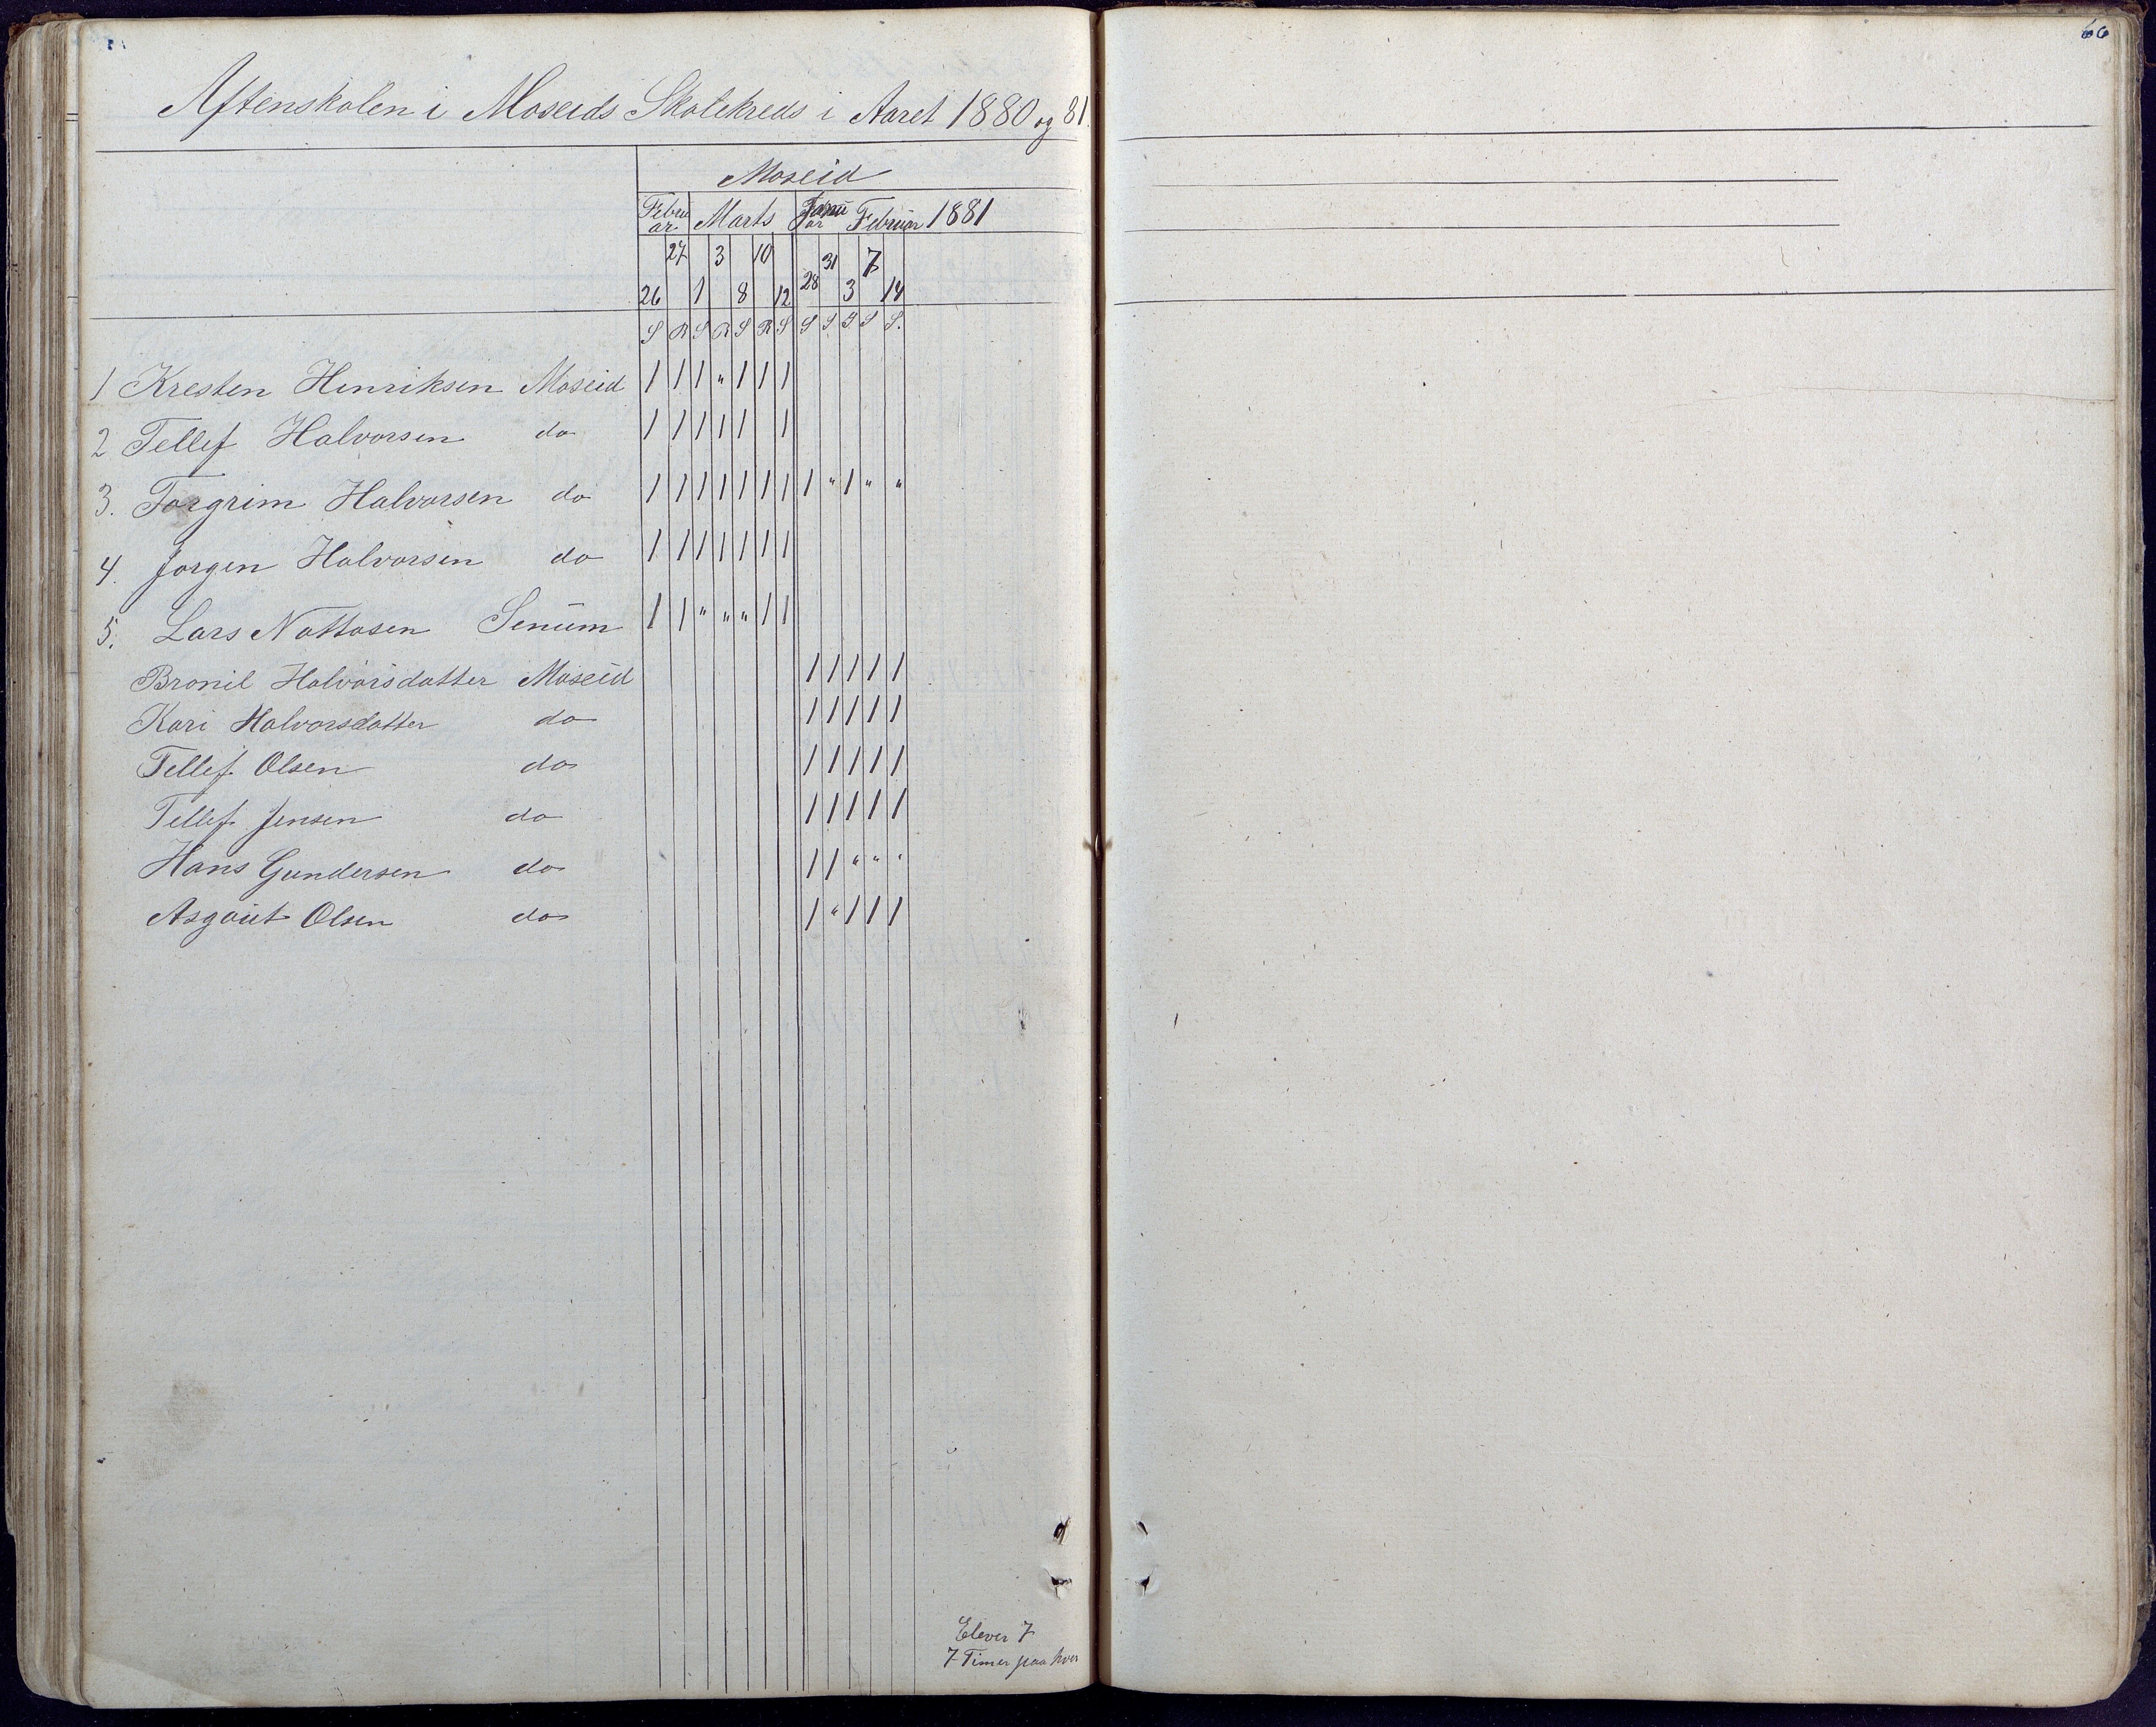 66
Aftenskolen i Moseids Skolekreds i Aaret 1880 og 81.
Moseid
Februar Marts Januar Februar 1881
27 3 10 31 7
26 1 8 12 28 3 14
S R S R S R S S S S S S.
1 Kresten Henriksen Moseid 1 1 1 " 1 1 1
2 Tellef Halvorsen do 1 1 1 1 1 1
3. Torgrim Halvorsen do 1 1 1 1 1 1 1 1 " 1 " "
4. Jorgen Halvorsen do 1 1 1 1 1 1 1
5. Lars Nottosen Senum 1 1 " " " 1 1
Bronil Halvorsdatter Moseid 1 1 1 1 1
Kari Halvorsdatter do 1 1 1 1 1
Tellef Olsen do 1 1 1 1 1
Tellef Jensen do 1 1 1 1 1
Hans Gundersen do 1 1 " " "
Asgaut Olsen do 1 " 1 1 1
Elever 7
7 Timer paa hver